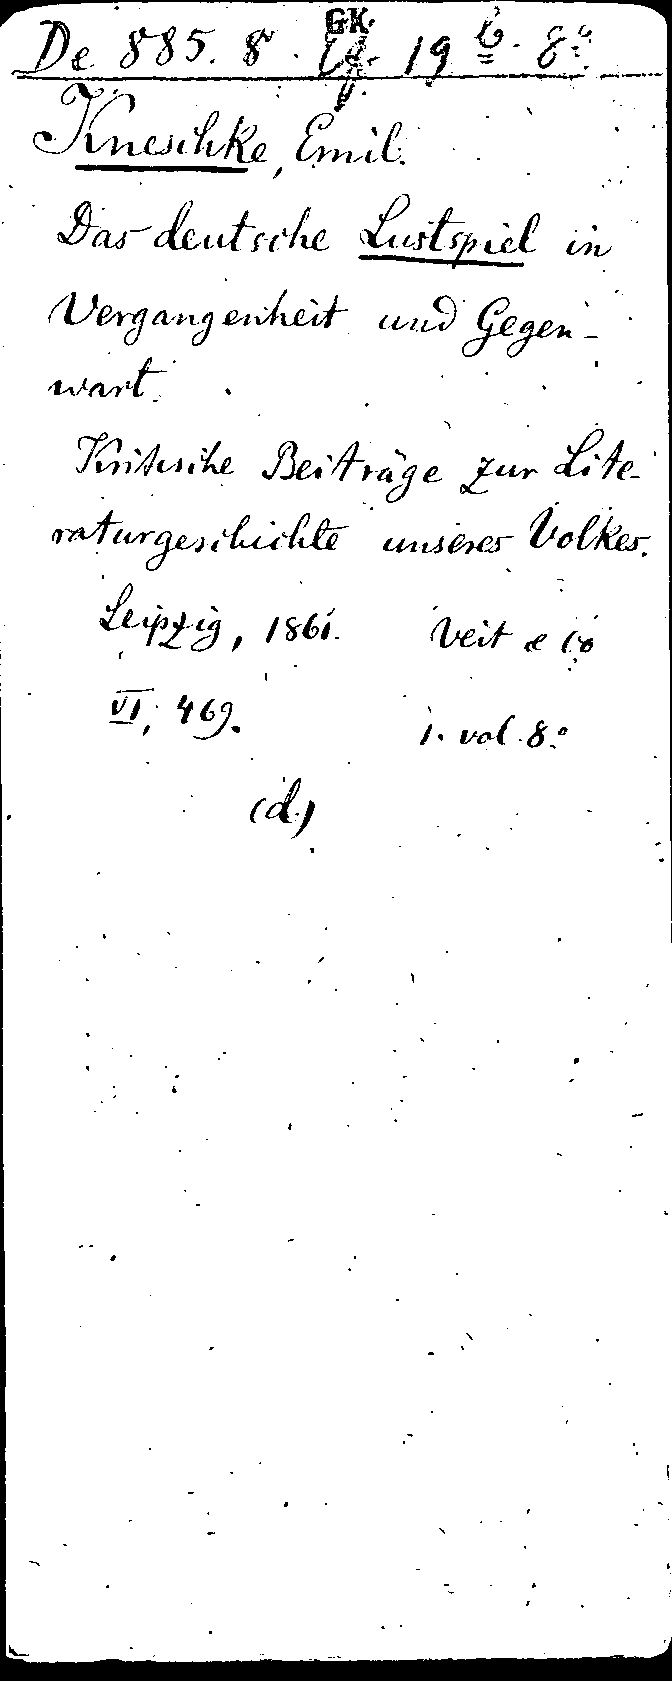 GK.
De 885. 8. 19 b. 8°.
Kneschke, Emil.
Das deutsche Lustspiel in
Vergangenheit und Gegen-
wart.
Kritische Beiträge zur Lite-
raturgeschichte unseres Volkes.
Leipzig, 1861. Veit & Co
VI, 469. 1. vol. 8°
(d.)